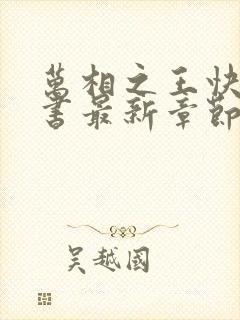 萬相之王快
書最新章節
吴越國